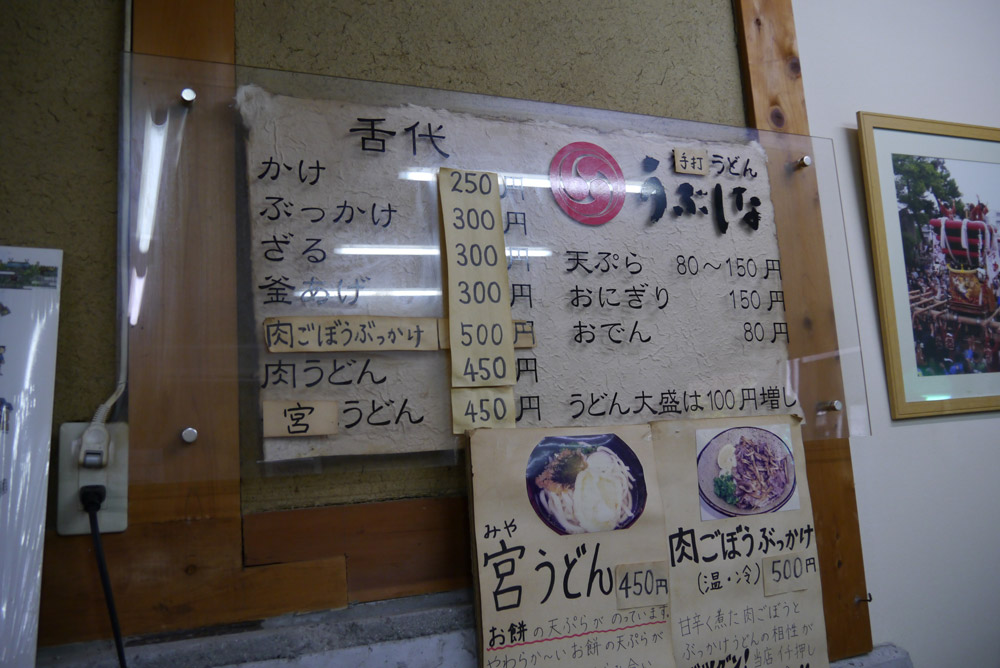 舌代
かけ 250円
ぶっかけ 300円
ざる 300円
釜あげ 300円
肉ごぼうぶっかけ 500円
肉うどん 450円
宮うどん 450円
手打うどん
うぶしな
天ぷら 80〜150円
おにぎり 150円
おでん 80円
うどん大盛は100円増し
みや
宮うどん 450円
お餅の天ぷらがのっています
やわらか〜いお餅の天ぷらが
肉ごぼうぶっかけ
(温・冷) 500円
甘辛く煮た肉ごぼうと
ぶっかけうどんの相性が
バツグン!当店イチ押し